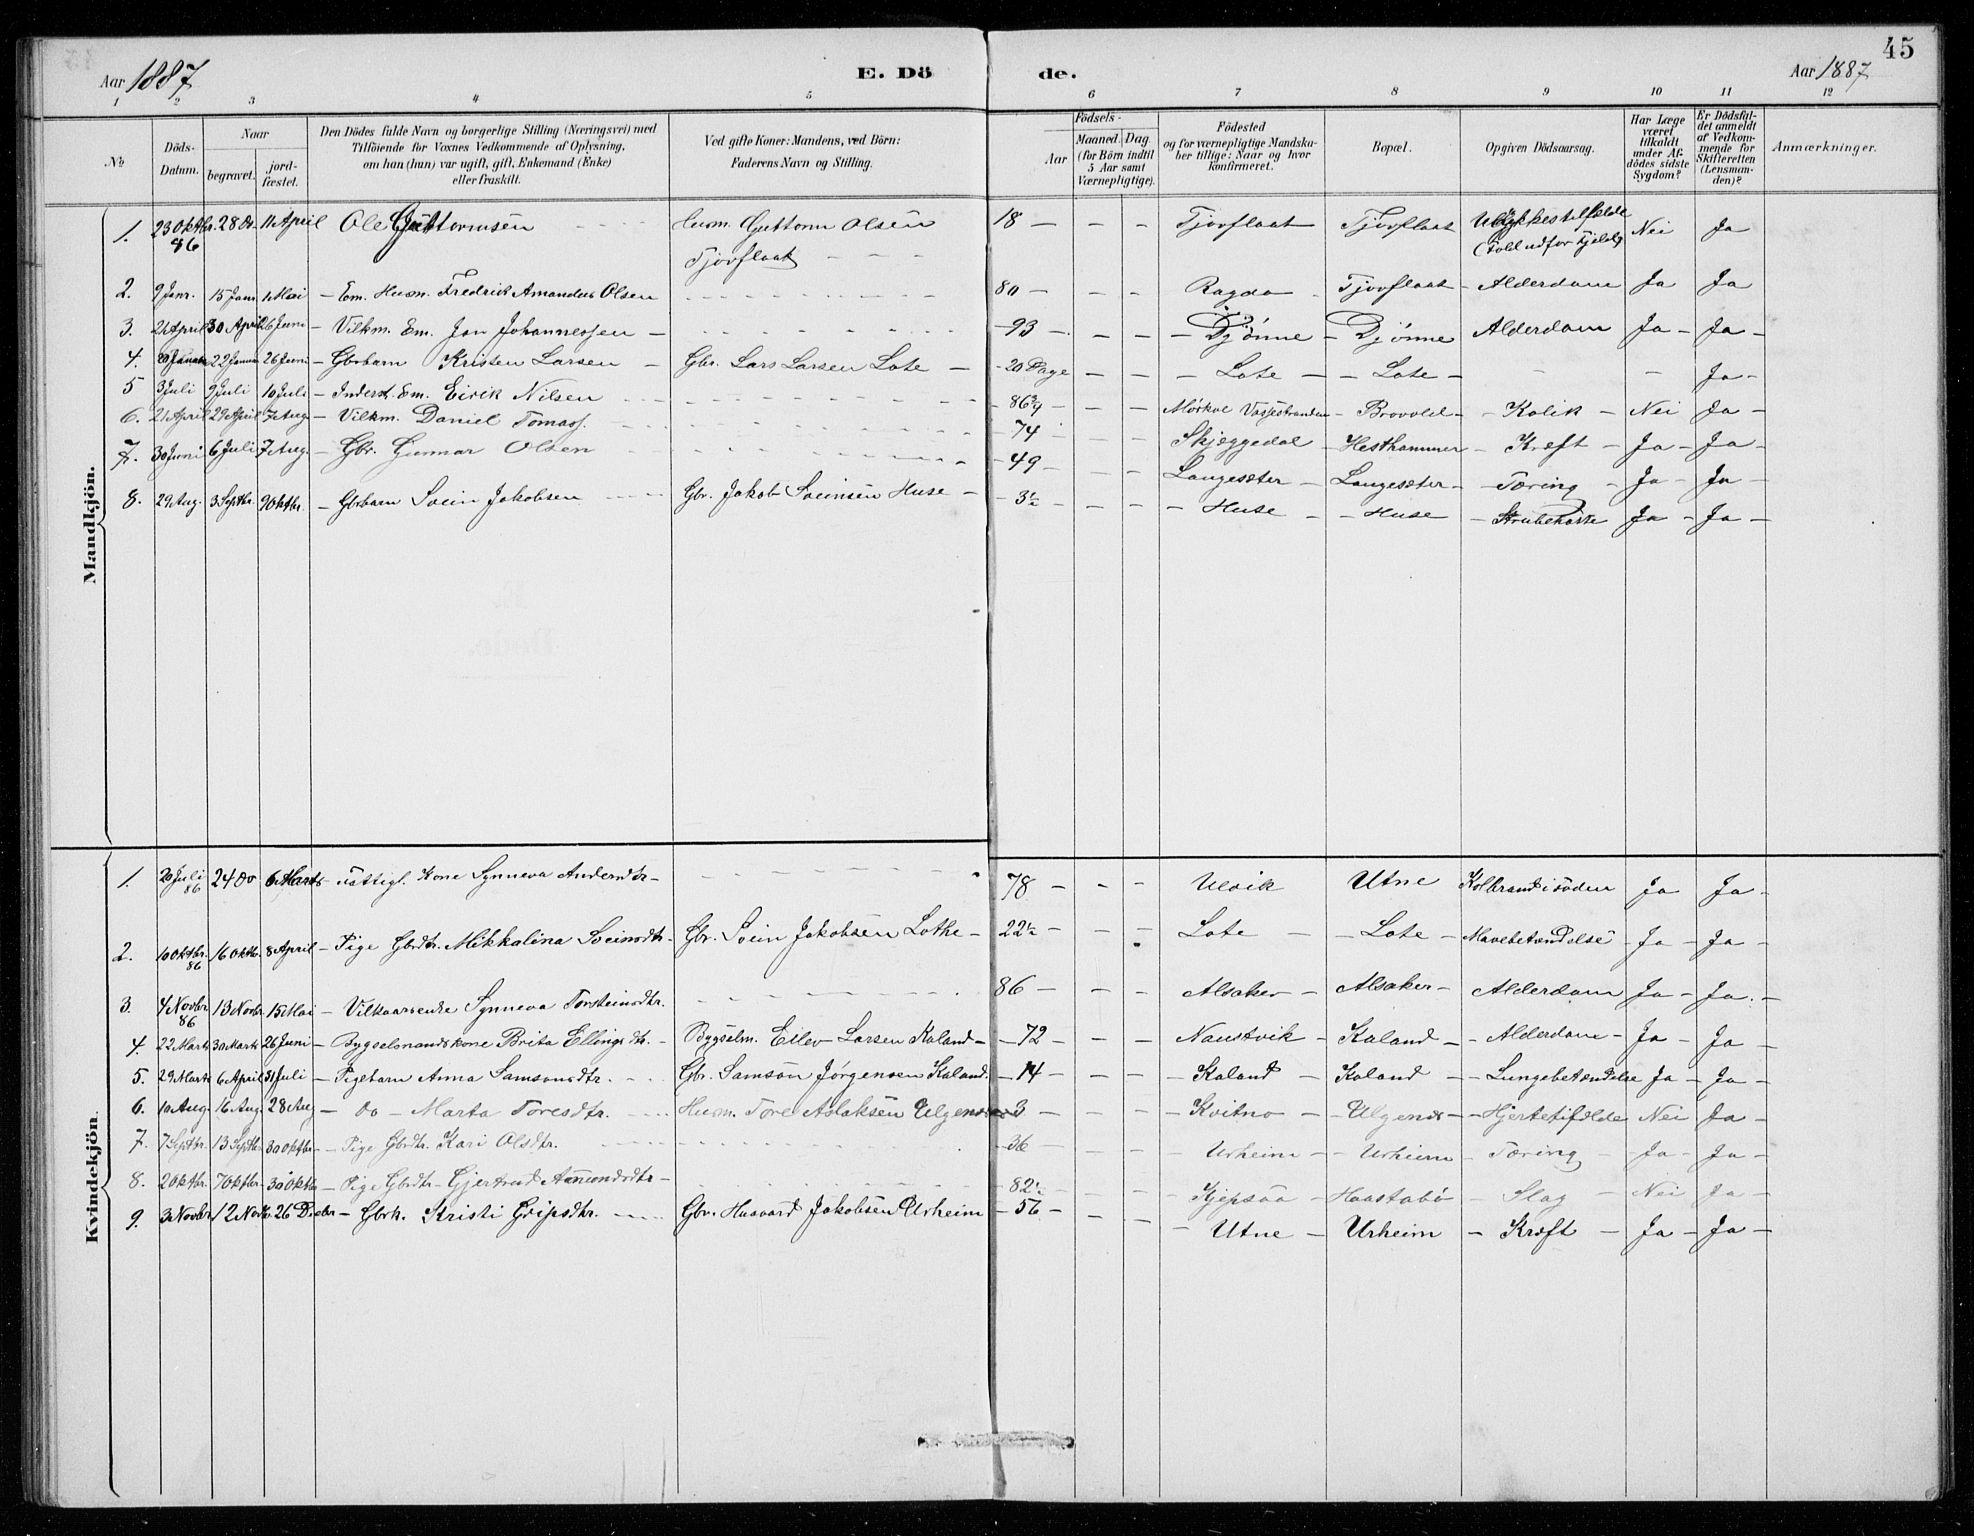 45
Aar 1887 E. Dö
de. Aar 1887
1 2 3 4 5 6 7 8 9 10 11 12
No
Döds-Datum.
Naar
begravet.
jord-fæstet.
Den Dödes fulde Navn og borgerlige Stilling (Næringsvei) med
Tilföiende for Voxnes Vedkommende af Oplysning,
om han (hun) var ugift, gift, Enkemand (Enke)
eller fraskilt.
Ved gifte Koner: Mandens, ved Börn:
Faderens Navn og Stilling.
Födsels-
Aar
Maaned. Dag.
(for Börn indtil
5 Aar samt
Værnepligtige).
Födested
og for værnepligtige Mandska-
ber tillige: Naar og hvor
konfirmeret.
Bopæl.
Opgiven Dödsaarsag.
Har Læge
været
tilkaldt
under Af-
dödes sidste
Sygdom?
Er Dödsfal-
det anmeldt
af Vedkom-
mende for
Skifteretten
(Lensman-
den)?
Anmærkninger.
Mandkjön.
1. 23 Oktbr. 28 Do. 11 April Ole Guttormsen - - - Husm. Guttorm Olsen 18 — - - Tjoflaat Tjoflaat Ulykkestilfælde Nei Ja
86 Tjoflaat - - - (fald udfor Fjeld)
2. 9 Janr. 15 Janr. 11 Mai - Em. Husm. Fredrik Amandus Olsen - - - 80 — - - Ragde - Tjoflaat - Alderdom Ja Ja
3. 21 April 30 April 26 Juni - Vilkm. Em. Jon Johannessen - - - - 93 - - - - Djønne - Djønne Alderdom Ja - Ja -
4. 20 Januar 22 Januar 26 Juni - Gbrbarn Kristen Larsen - Gbr. Lars Larsen Lote - - 20 Dage - - - Lote - - Lote - - - Ja -
5 3 Juli 9 Juli 10 Juli - Inderst. Em. Eirik Nilsen - - - - 86 3/4 - - Mørkve Vossestranden - Brovold - - Kolik - Nei - Ja -
6. 21 April 29 April 7 Aug - Vilkm. Daniel Tomass. - - - - 74 - - - Skjæggedal - Hesthammer - Kræft - Ja - Ja -
7. 30 Juni 6 Juli 7 Aug. - Gbr. Gunnar Olsen - - - - 49 - - - Langesæter - Langesæter - - Tæring - Ja - Ja -
8. 29 Aug. 3 Septbr. 9 Oktbr. - Gbrbarn Svein Jakobsen - - Gbr. Jakob Sveinsen Huse - - 3½ - - - - Huse - - Huse - - Strubehoste Ja - Ja -
Kvindekjön
1. 20 Juli 24 Do 6 Marts - Fattigl. Kone Synneva Andersdtr - - - - 78 - - - Ulvik Utne Kolbrand i foden Ja Ja -
86
2. 10 Oktbr. 16 Oktb. 8 April - Pige Gbrdtr. Mikkalina Sveinsdtr - Gbr. Svein Jakobsen Lothe - - 22½ - - - Lote - - Lote - Mavebetændelse - Ja - Ja -
86
3. 4 Novbr 13 Novbr. 15 Mai - Vilkaarsenke Synneva Torsteinsdtr. - - - 86 - - - Alsaker - Alsaker - Alderdom Ja - Ja. -
86
4. 22 Marts 30 Marts 26 Juni - Bygselmandskone Brita Ellingsdtr. - Bygselm. Eilev Larsen Kaland - - 72 - - - Naustvik - Kaland - - Alderdom - Ja - Ja -
5. 29 Marts 6 April 31 Juli - Pigebarn Anna Samsonsdtr. - - Gbr. Samson Jørgensen Kaland. - 14 - - - Kaland - Kaland - - Lungebetændelse Ja - Ja -
6. 10 Aug 16 Aug. 28 Aug - Do - Marta Toresdtr. - - - Husm. Tore Aslaksen - 3 - - - Kvitno - - Hjertefeilde Nei Ja -
7. 7 Septbr. 13 Septbr. 30 Oktbr - - Pige Gbrdtr. Kari Olsdtr. - - - - 36 - - - Urheim - - Urheim - Tæring - Ja - Ja -
8. 2 Oktbr. 7 Oktbr. - 30 Oktbr - Pige Gbrdtr - Gjertrud Aamundsdtr - - - - 82½ - - - Kjepsaa - Haastabø - Slag - Nei Ja -
9. 3 Novbr. 12 Novbr. 26 Decbr - Gbrk. Kristi Gripsdtr. - - - Gbr. Haavard Jakobsen Urheim - 56 - - - - Utne - Urheim - Kræft - Ja - Ja -